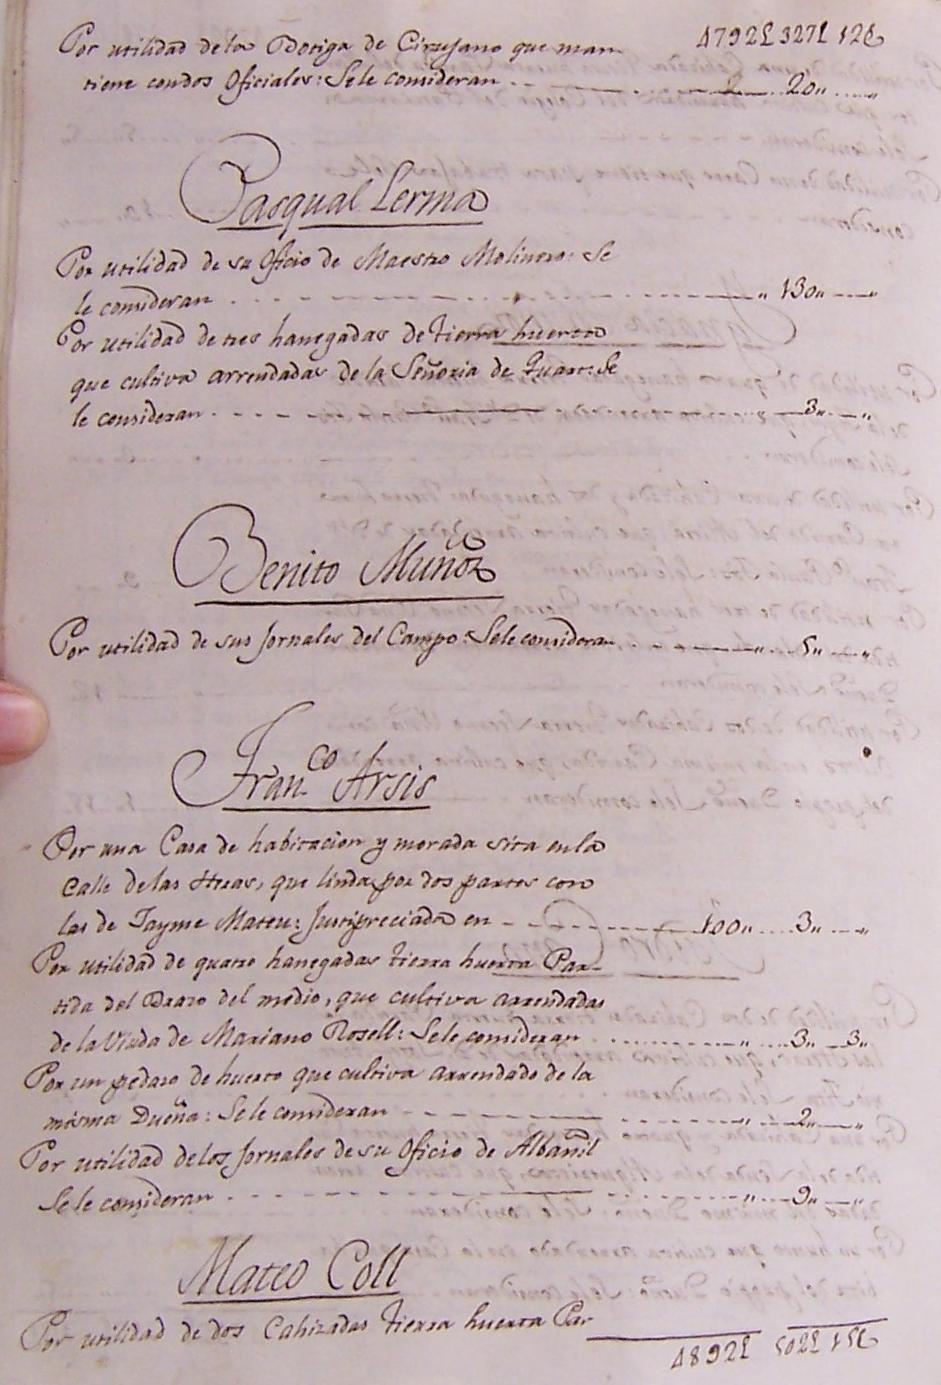 4792£ 327£ 12£
Por utilidad de la Botiga de Cirujano que man-
tiene con dos Oficiales: Sele consideran 20,,
Pasqual Lerma
Por utilidad de su Oficio de Maestro Molinero: Se
le consideran ,, 130,, ,,
Por utilidad de tres hanegadas de tierra huerta
que cultiva arrendadas de la Señoria de Quart: Se
le consideran 3,, ,,
Benito Muñoz
Por utilidad de sus Jornales del Campo: Sele consideran ,, 5,, ,,
Fran.co Arsis
Por una Casa de habitacion y morada sita en la
Calle de las Heras, que linda por dos partes con
las de Jayme Mateu: Justipreciada en 100,, 3,, ,,
Por utilidad de quatro hanegadas tierra huerta Par-
tida del Brazo del medio, que cultiva arrendadas
de la Viuda de Mariano Rosell: Sele consideran ,, 3,, 3,,
Por un pedazo de huerto que cultiva arrendado de la
misma Dueña: Sele consideran ,, 2,, ,,
Por utilidad de los Jornales de su Oficio de Albañil
Sele consideran ,, 9,, ,,
Mateo Coll
Por utilidad de dos Cahizadas tierra huerta Par
4892£ 502£ 15£